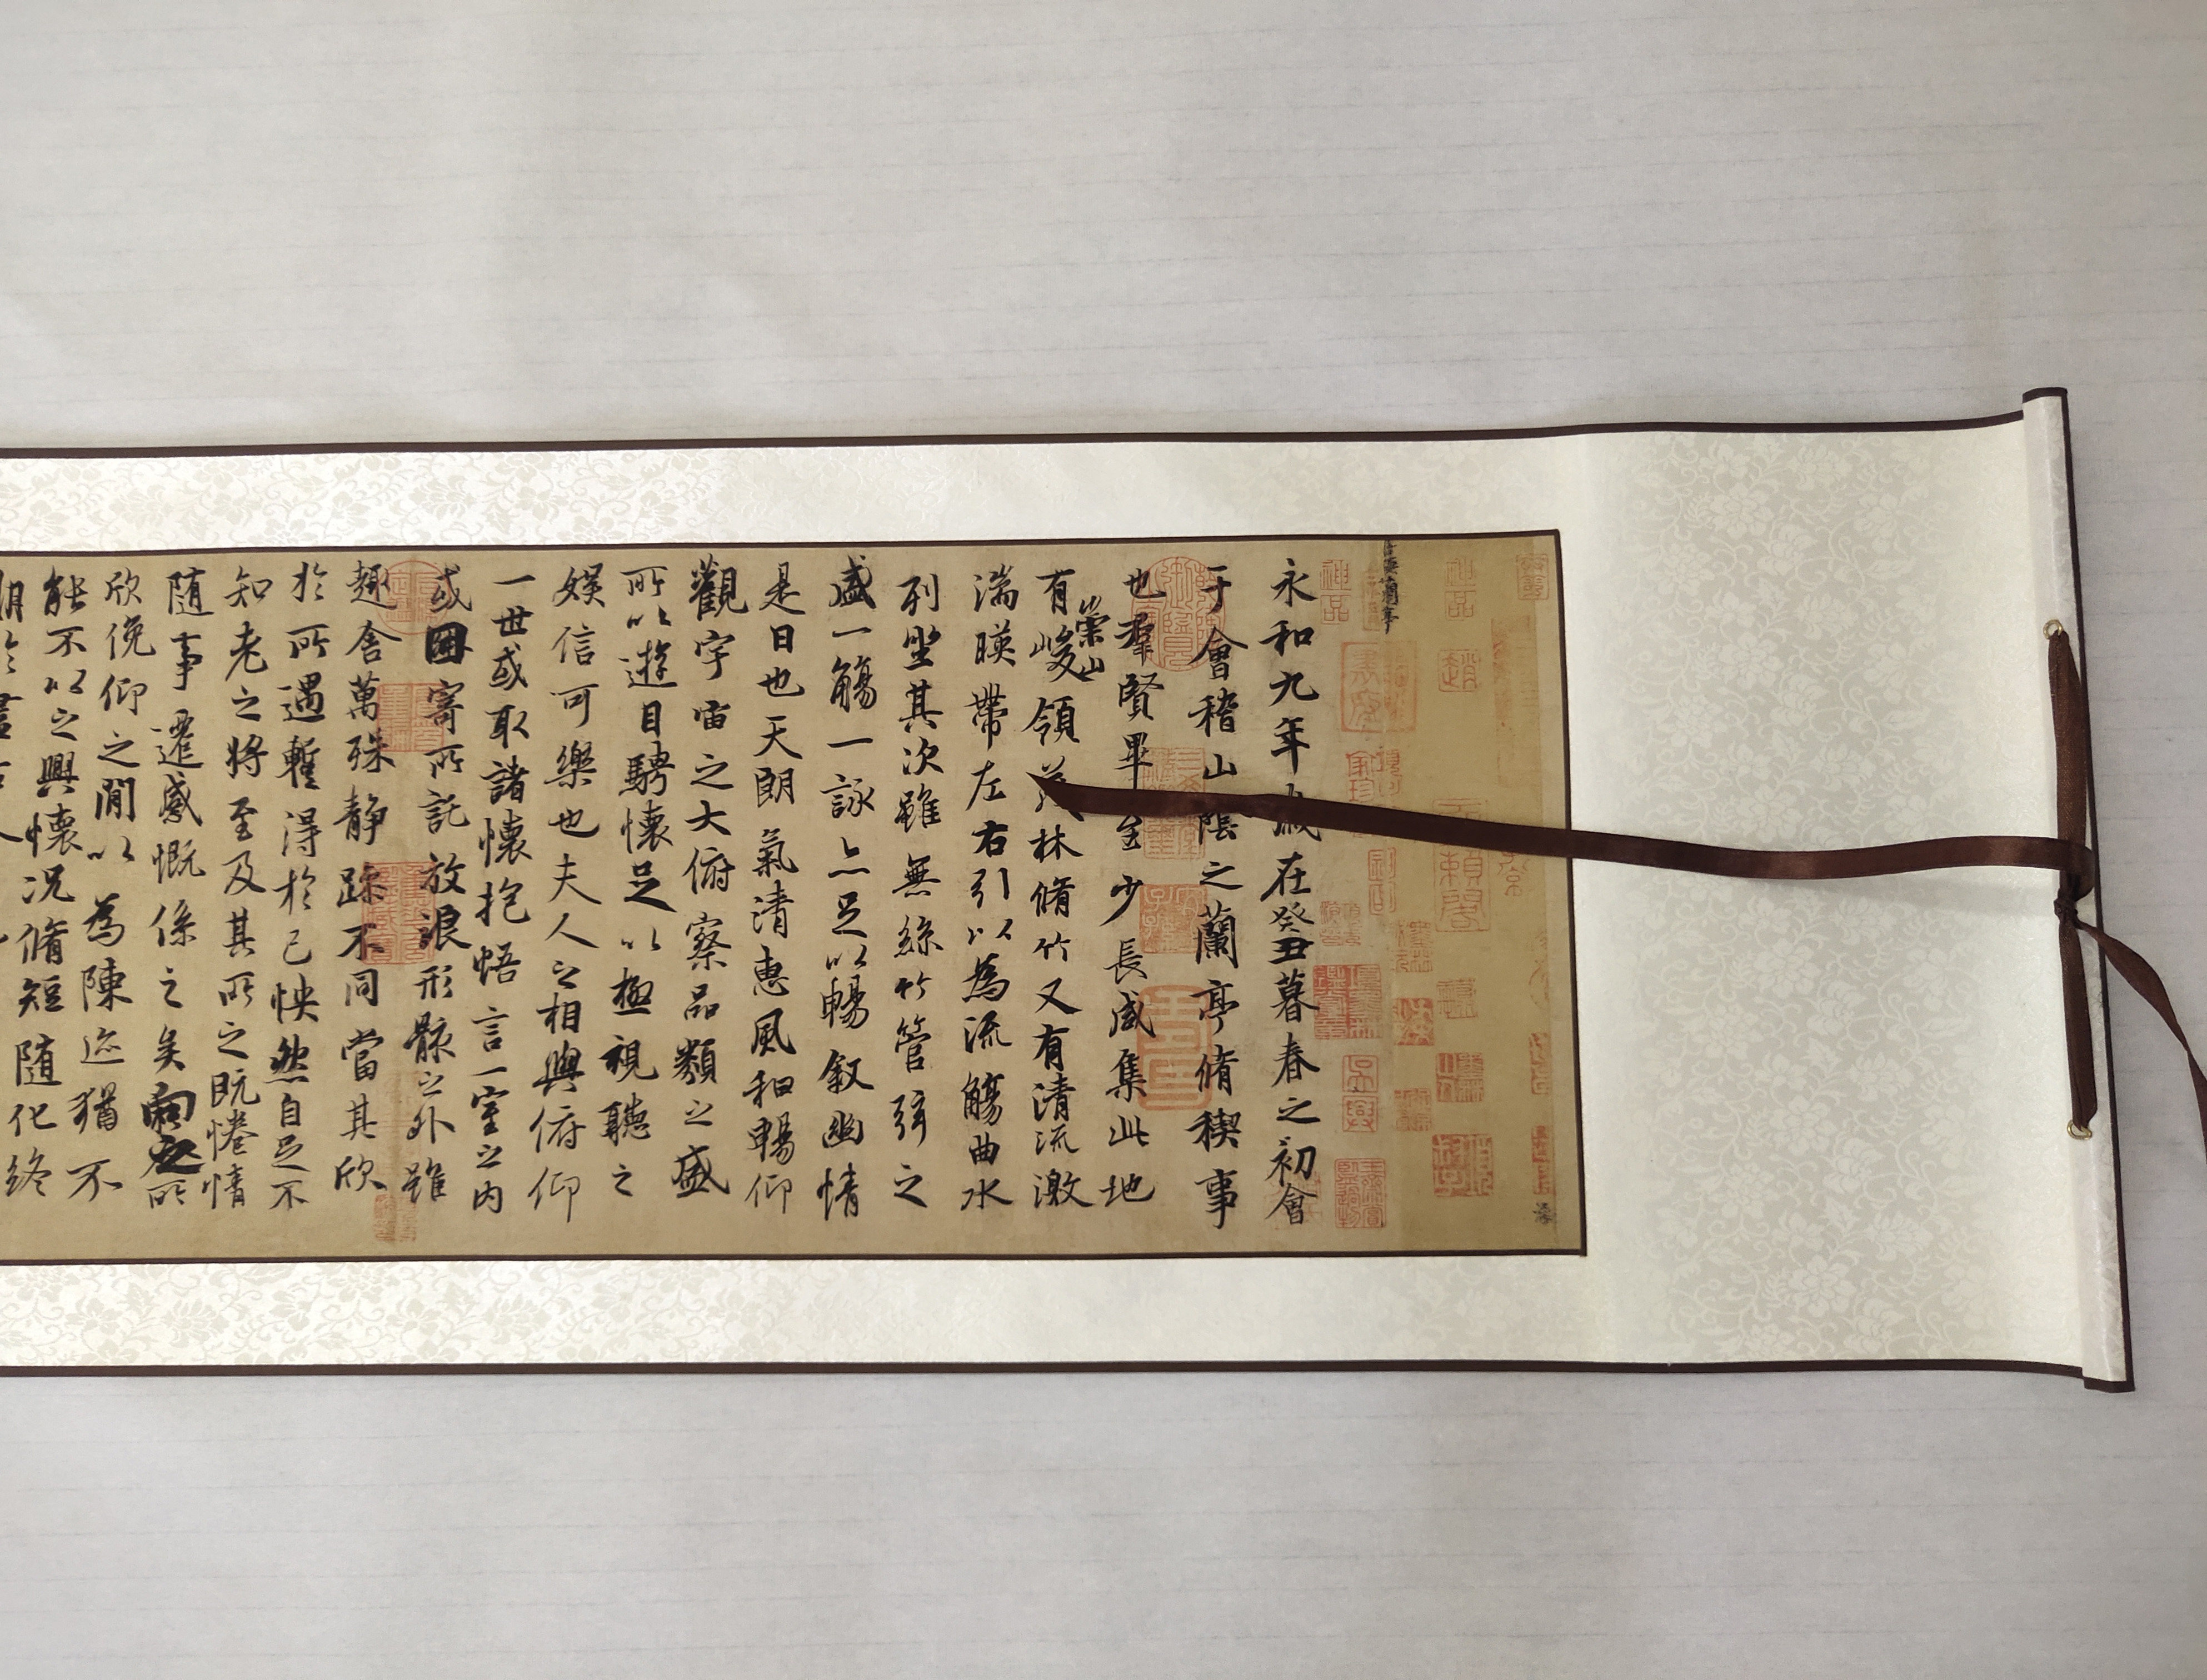 神品
永和九年歲在癸丑暮春之初會
于會稽山陰之蘭亭脩稧事
也羣賢畢至少長咸集此地
有崇山峻領茂林脩竹又有清流激
湍暎帶左右引以為流觴曲水
列坐其次雖無絲竹管弦之
盛一觴一詠亦足以暢敘幽情
是日也天朗氣清惠風和暢仰
觀宇宙之大俯察品類之盛
所以遊目騁懷足以極視聽之
娛信可樂也夫人之相與俯仰
一世或取諸懷抱悟言一室之內
或因寄所託放浪形骸之外雖
趣舍萬殊靜躁不同當其欣
於所遇暫得於己怏然自足不
知老之將至及其所之既惓情
隨事遷感慨係之矣向之所
欣俛仰之閒以為陳迹猶不
能不以之興懷況脩短隨化終
期於